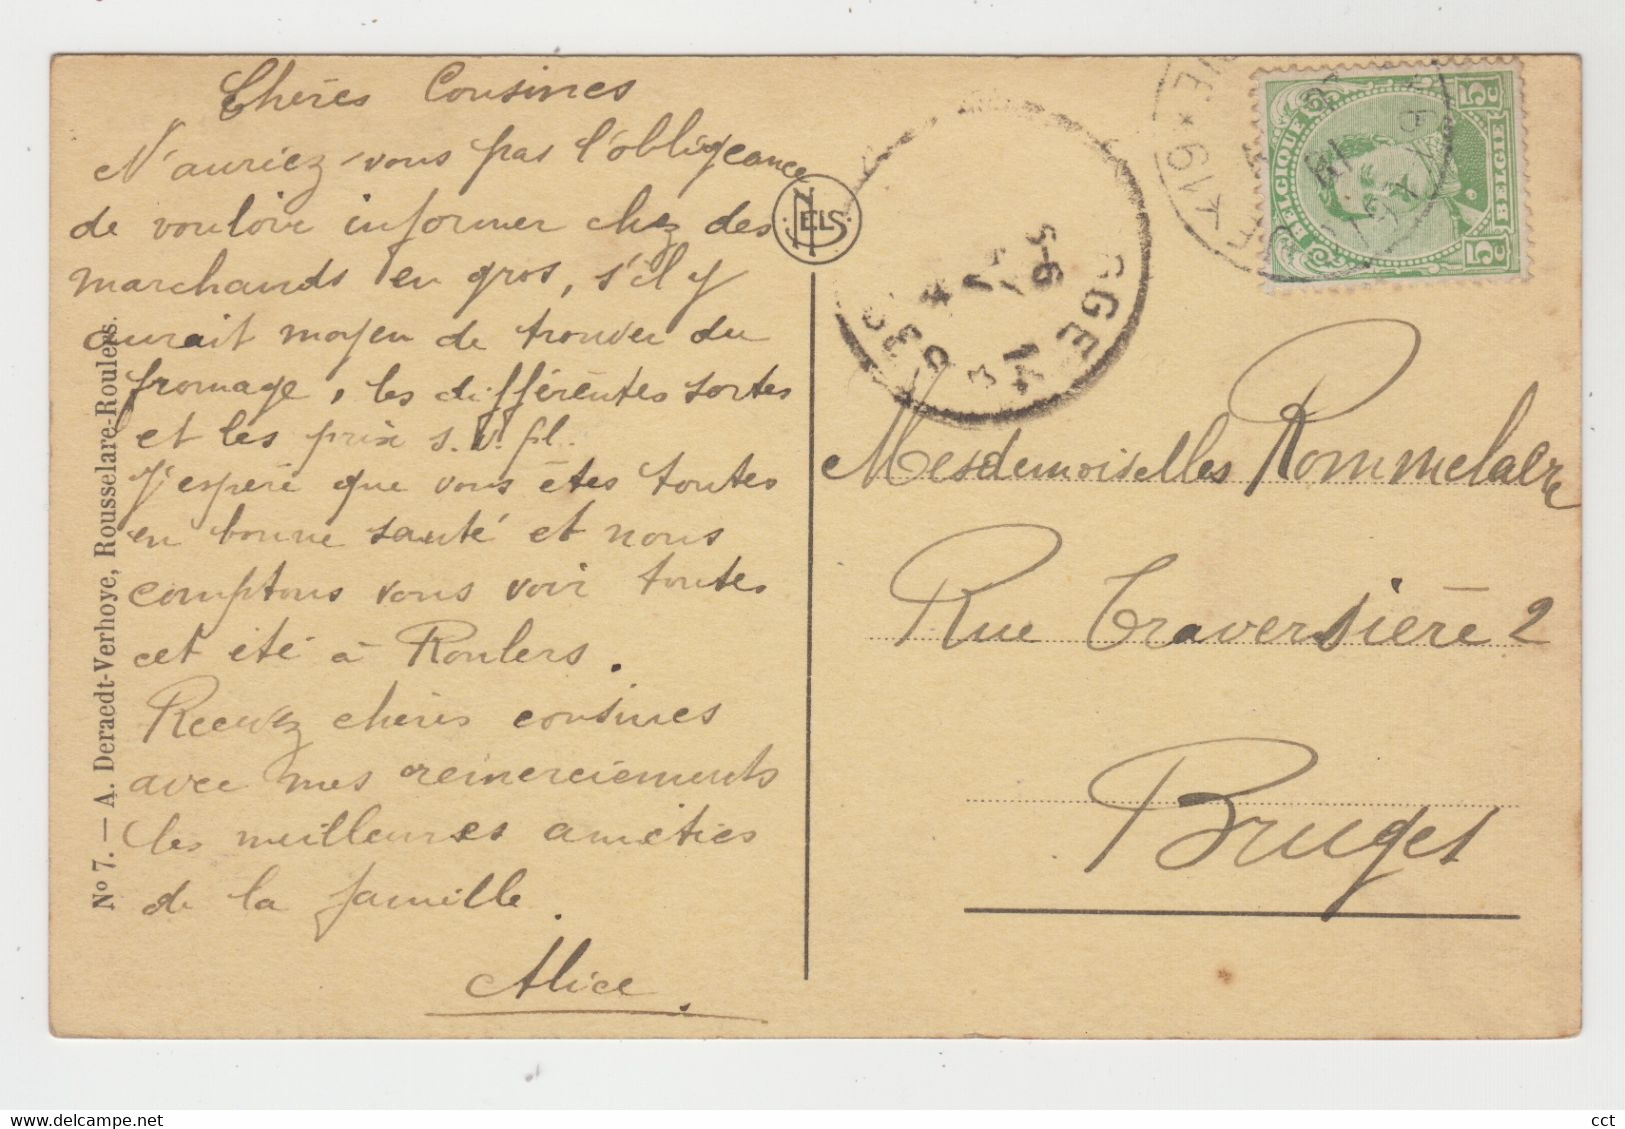 Chères Cousines
N'auriez-vous pas l'obligeance
de vouloir informer chez des
marchands en gros, s'il y
aurait moyen de trouver du
fromage, les différentes sortes
et les prix s.v.pl.
J'espère que vous êtes toutes
en bonne santé et nous
comptons vous voir toutes
cet été à Roulers.
Recevez chères cousines
avec mes remerciements
les meilleures amitiés
de la famille.
Alice.
No 7. — A. Deraedt-Verhoye, Rousselare-Roulers.
NELS
5-6
BELGIQUE
BELGIE
5c
5c
Mesdemoiselles Rommelaere
Rue Traversière 2
Bruges
cct